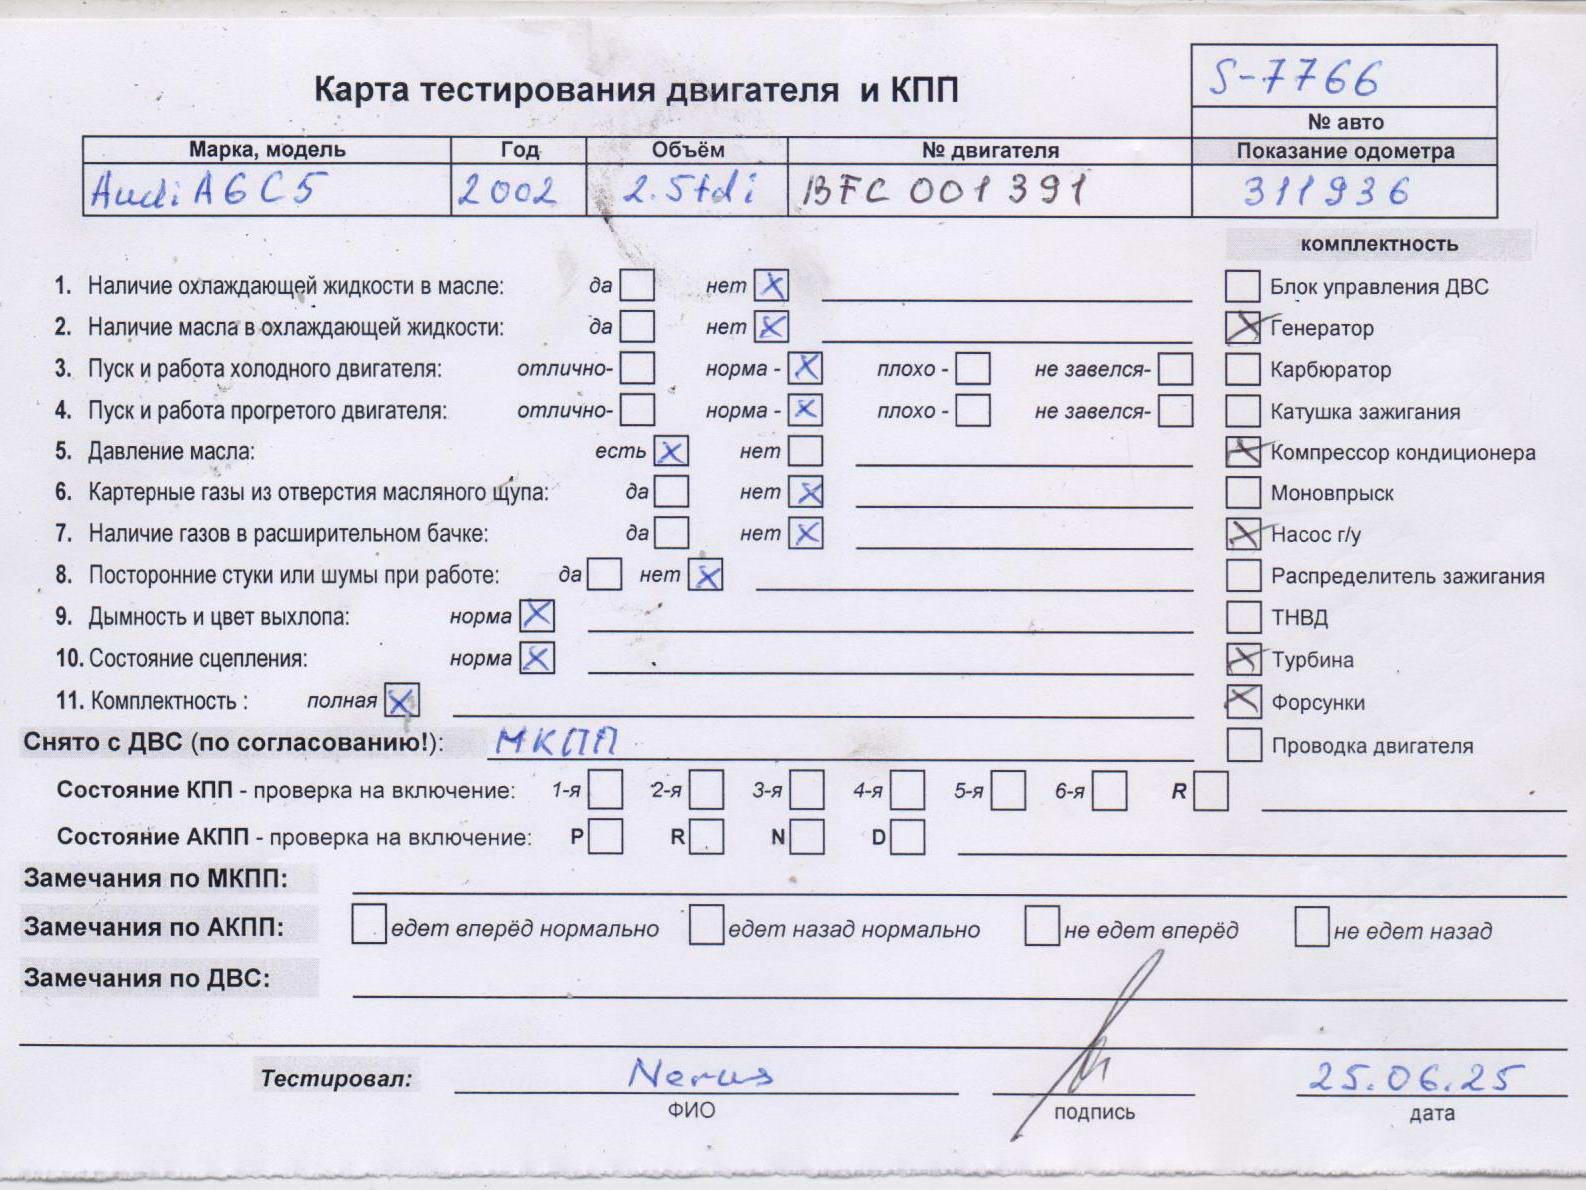 S-7766
Карта тестирования двигателя и КПП
№ авто
Марка, модель Год Объём № двигателя Показание одометра
Audi A6 C5 2002 2.5tdi BFC 001391 311936
комплектность
1. Наличие охлаждающей жидкости в масле: да нет X Блок управления ДВС
2. Наличие масла в охлаждающей жидкости: да нет X X Генератор
3. Пуск и работа холодного двигателя: отлично- норма - X плохо - не завелся- Карбюратор
4. Пуск и работа прогретого двигателя: отлично- норма - X плохо - не завелся- Катушка зажигания
5. Давление масла: есть X нет X Компрессор кондиционера
6. Картерные газы из отверстия масляного щупа: да нет X Моновпрыск
7. Наличие газов в расширительном бачке: да нет X X Насос г/у
8. Посторонние стуки или шумы при работе: да нет X Распределитель зажигания
9. Дымность и цвет выхлопа: норма X ТНВД
10. Состояние сцепления: норма X X Турбина
11. Комплектность : полная X X Форсунки
Снято с ДВС (по согласованию!): МКПП Проводка двигателя
Состояние КПП - проверка на включение: 1-я 2-я 3-я 4-я 5-я 6-я R
Состояние АКПП - проверка на включение: P R N D
Замечания по МКПП:
Замечания по АКПП: едет вперёд нормально едет назад нормально не едет вперёд не едет назад
Замечания по ДВС:
Тестировал: Nerus 25.06.25
ФИО подпись дата